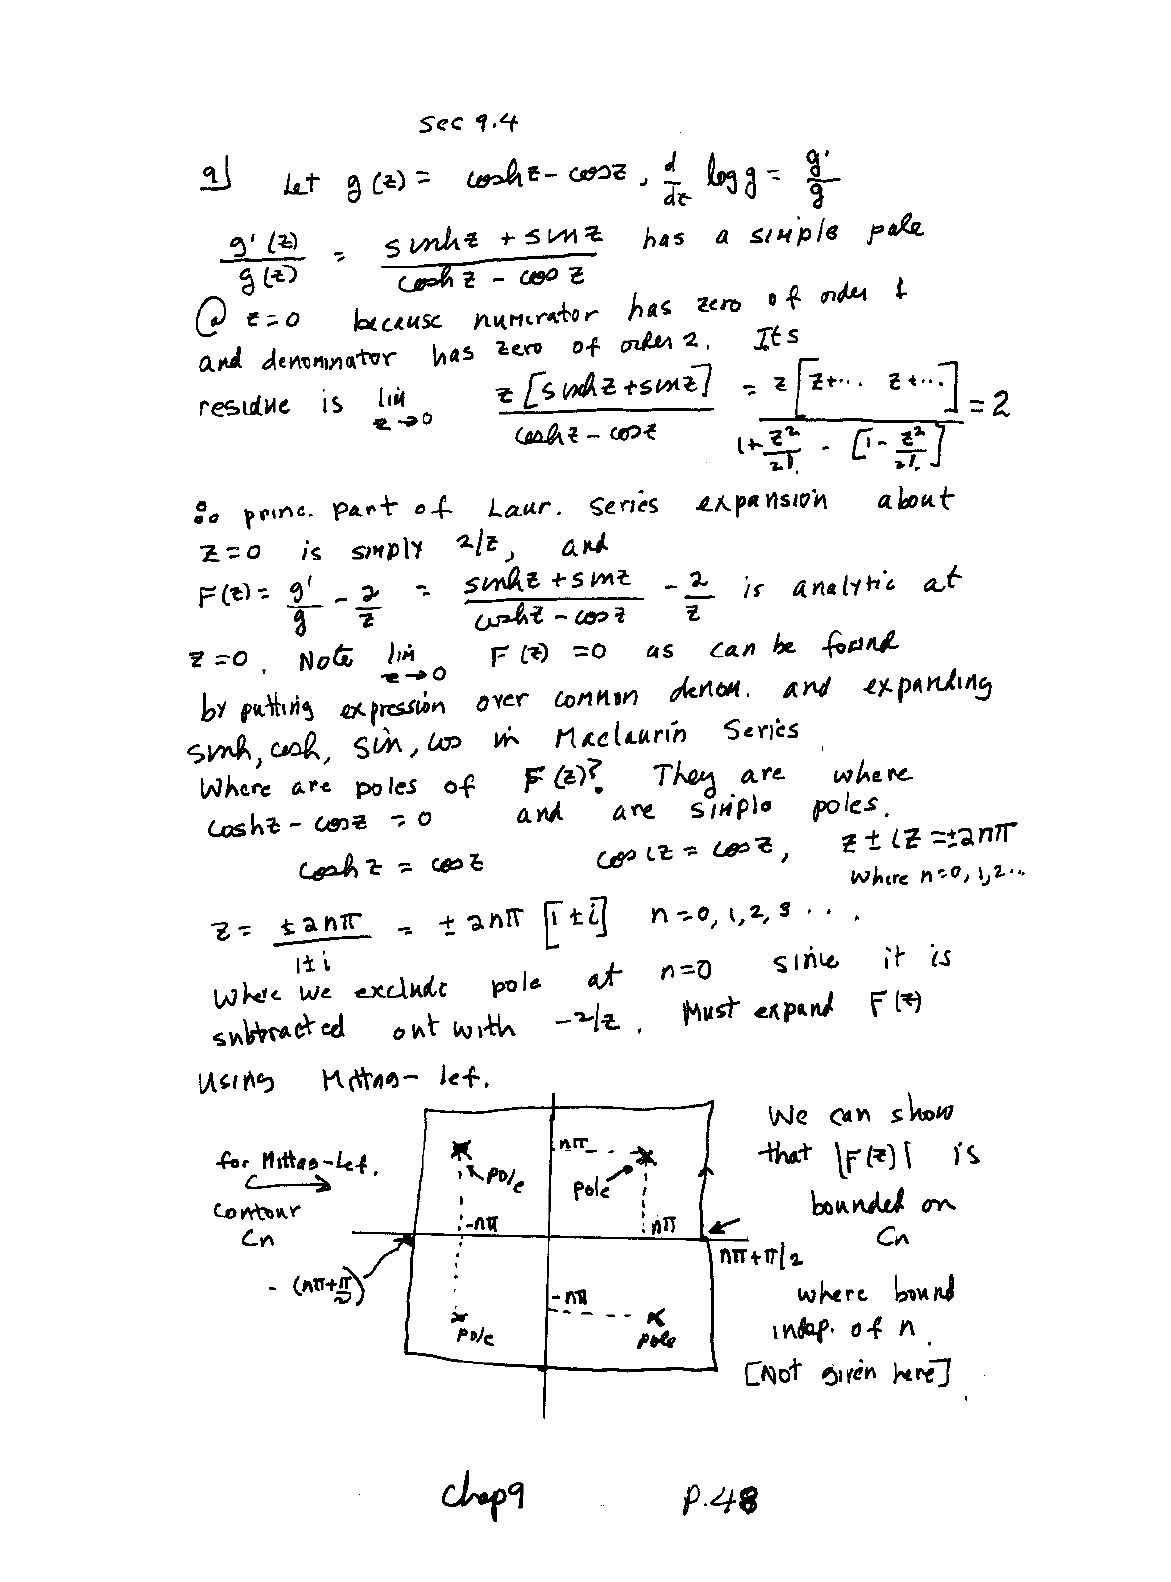 Sec 9.4
9] Let g(z) = cosh z - cos z, d/dz log g = g'/g
g'(z)/g(z) = (sinh z + sin z)/(cosh z - cos z) has a simple pole
@ z=0 because numerator has zero of order 1
and denominator has zero of order 2. Its
residue is lim z→0 z[sinh z + sin z]/(cosh z - cos z) = z[z+... z+...]/(1+z²/2! - [1-z²/2!]) = 2
∴ princ. part of Laur. series expansion about
z=0 is simply 2/z, and
F(z) = g'/g - 2/z = (sinh z + sin z)/(cosh z - cos z) - 2/z is analytic at
z=0. Note lim z→0 F(z) = 0 as can be found
by putting expression over common denom. and expanding
sinh, cosh, sin, cos in Maclaurin Series
Where are poles of F(z)? They are where
cosh z - cos z = 0 and are simple poles.
cosh z = cos z cos iz = cos z, z ± iz = ±2nπ
where n=0,1,2...
z = ±2nπ/(1±i) = ±2nπ [1±i] n=0,1,2,3...
Where we exclude pole at n=0 since it is
subtracted out with -2/z. Must expand F(z)
Using Mittag-lef.
We can show
that |F(z)| is
bounded on
Cn
where bound
indep. of n.
[Not given here]
for Mittag-Lef.
contour
Cn
nπ
pole
pole
-nπ
nπ
nπ+π/2
-(nπ+π/2)
-nπ
pole
pole
Chap 9 P.48